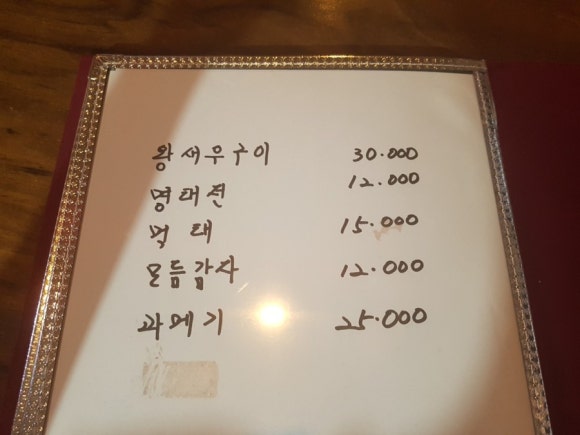 왕새우구이 30.000
명태전 12.000
먹태 15.000
모듬감자 12.000
과메기 25.000